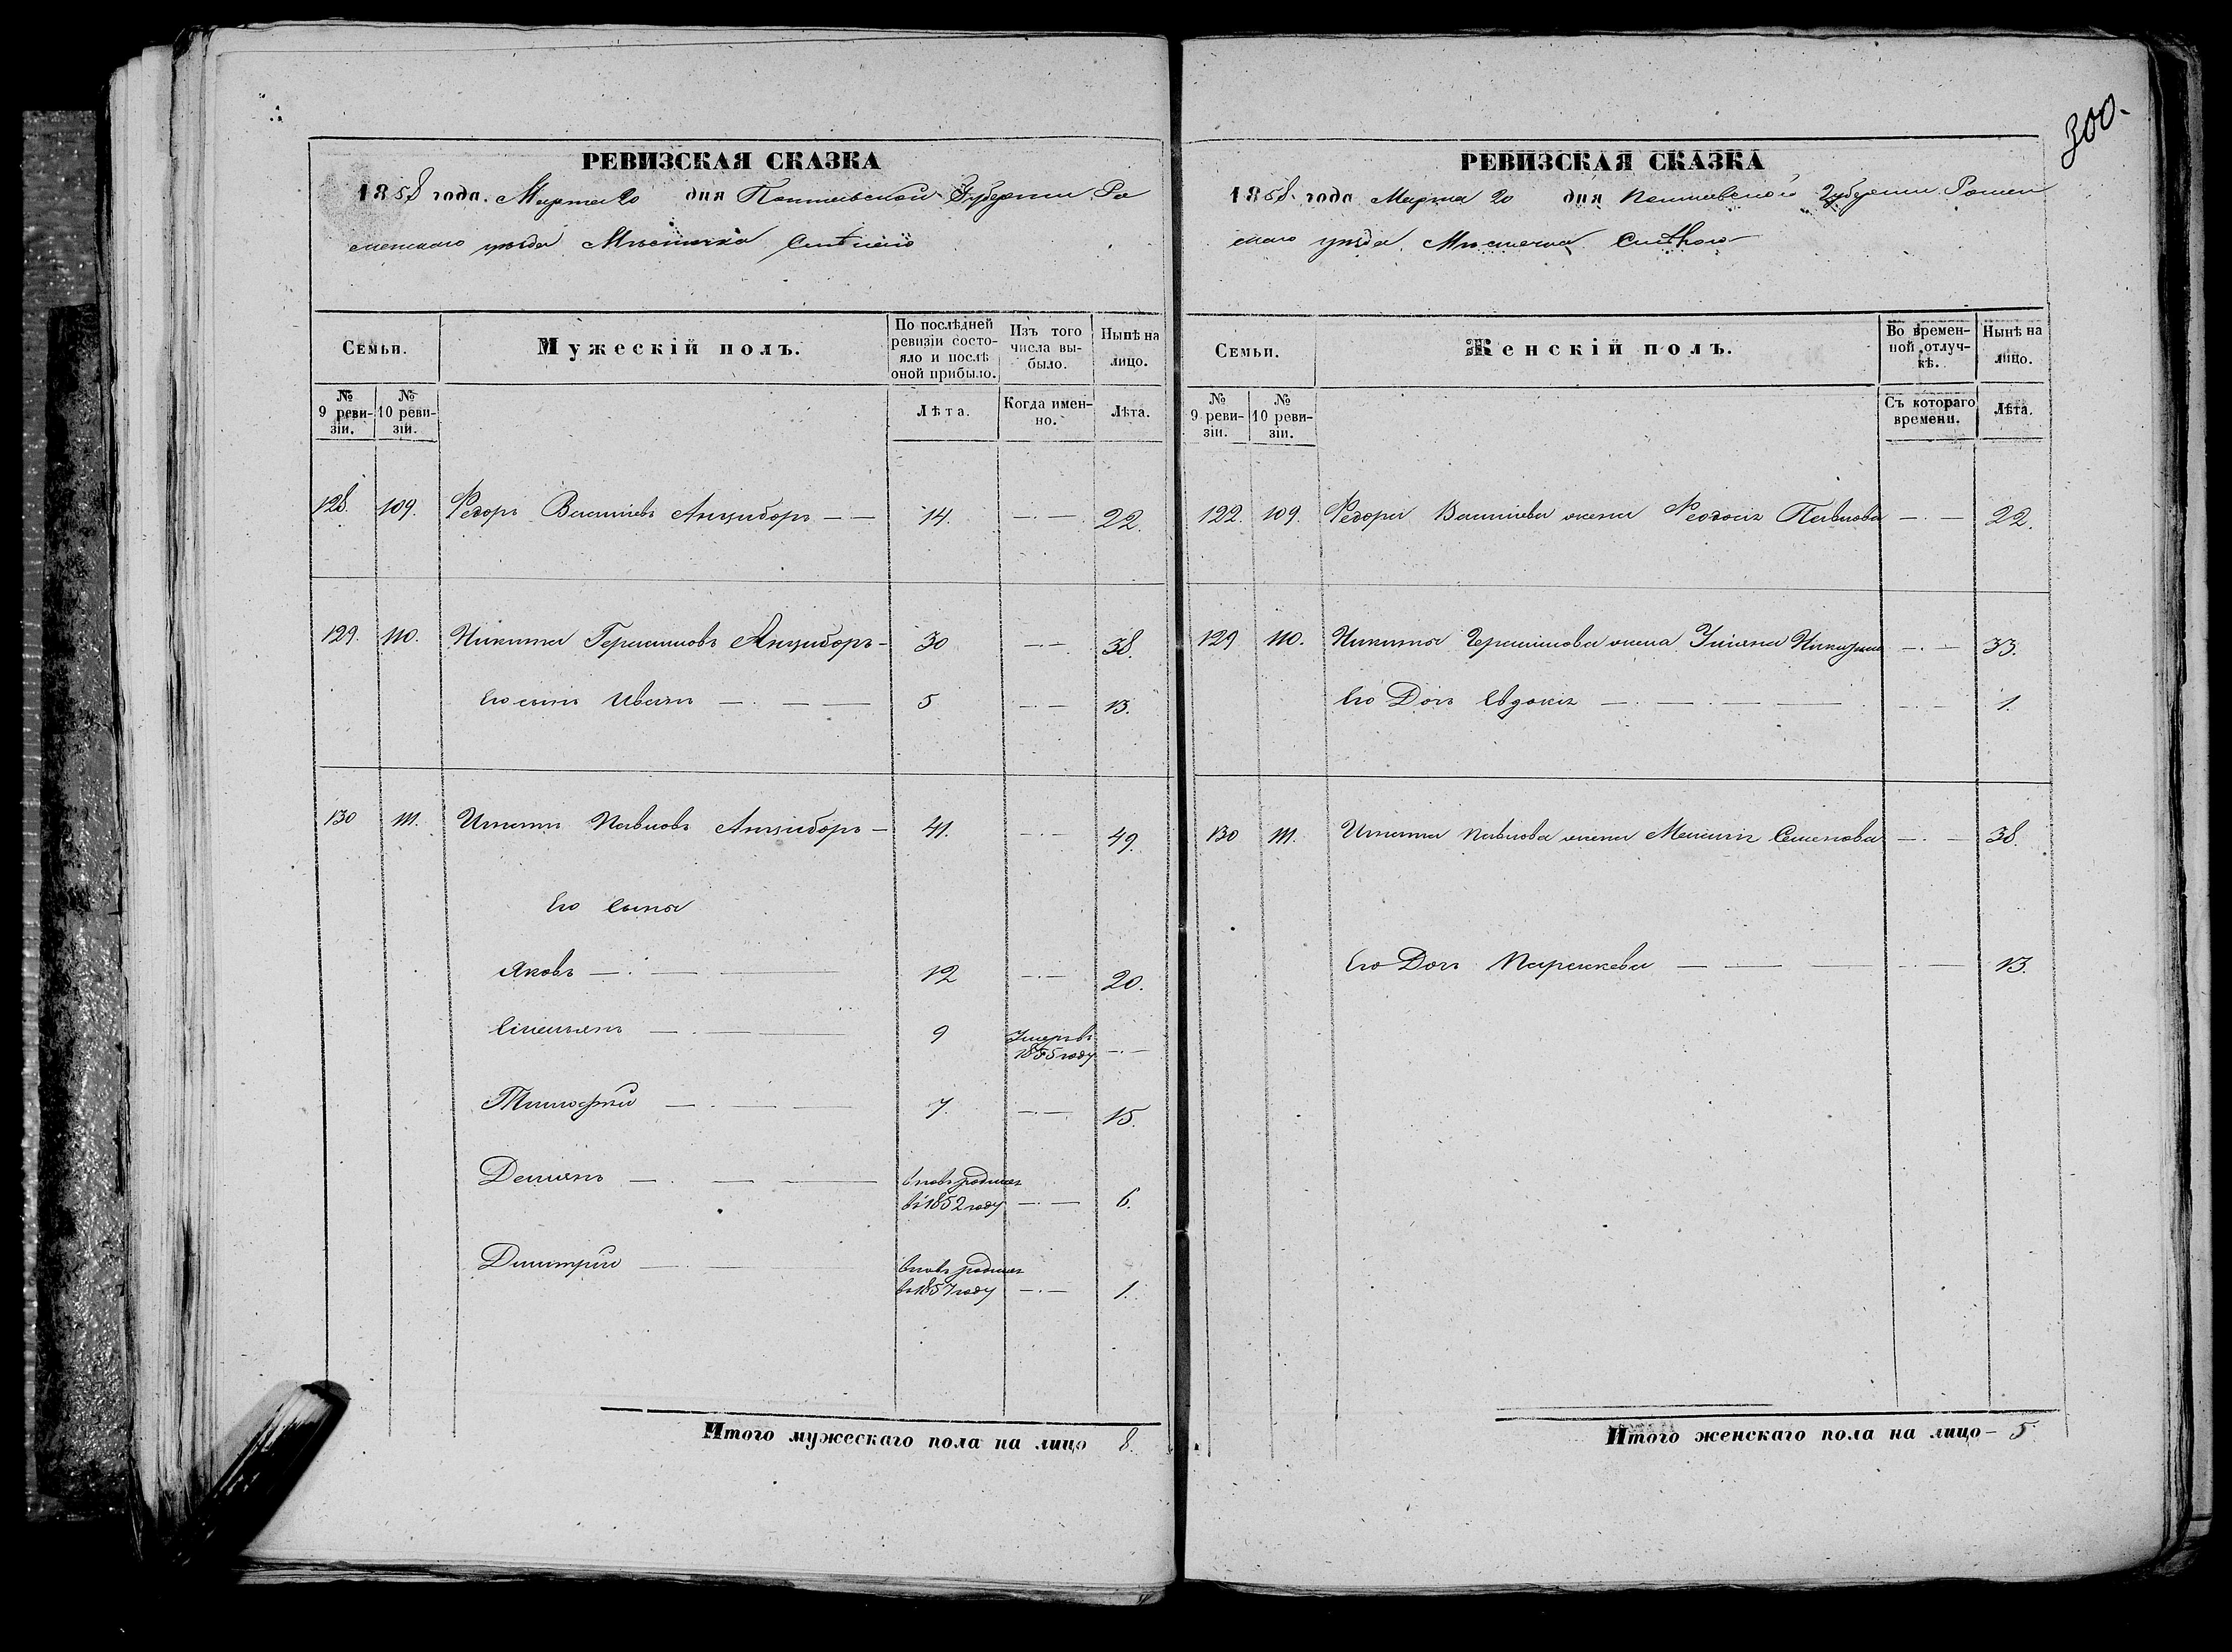 300.
РЕВИЗСКАЯ СКАЗКА
1858 года. Марта 20 дня Полтавской Губернии Ро
менскаго уѣзда Мѣстечка Смѣлаго
Семьи.
Мужескій полъ.
По послѣдней ревизіи состояло и послѣ оной прибыло.
Изъ того числа выбыло.
Нынѣ на лицо.
№ 9 ревизіи.
№ 10 ревизіи.
Лѣта.
Когда именно.
Лѣта.
128. 109. Федоръ Васильевъ Анциборъ — — 14. — — 22.
129. 110. Никита Герасимовъ Анциборъ — 30 — — 38.
Его сынъ Иванъ — — — 5 — — 13.
130 111. Игнатъ Павловъ Анциборъ — 41. — — 49.
Его Сыны
Яковъ — — — 12 — — 20.
9 Умеръ въ
1855 году — —
Тимофей — — — 7. — — 15.
Демьянъ — — — вновь родился
въ 1852 году — — 6.
Димитрий — — вновь родился
въ 1857 году — — 1.
Итого мужескаго пола на лицо 8.
РЕВИЗСКАЯ СКАЗКА
1858. года Марта 20 дня Полтавской Губернии Ромен
скаго уѣзда. Мѣстечка Смѣлаго
Семьи.
Женскій полъ.
Во временной отлучкѣ.
Нынѣ на лицо.
№ 9 ревизіи.
№ 10 ревизіи.
Съ котораго времени.
Лѣта.
122. 109. Федора Васильева жена Феодосія Павлова — — 22.
129 110. Никиты Герасимова жена Ульяна — — 33.
Его Дочь Евдокія — — — — — — 1.
130 111. Игната Павлова жена Семенова — — 38.
Его Дочь Параскева — — — — — 13.
Итого женскаго пола на лицо — 5.